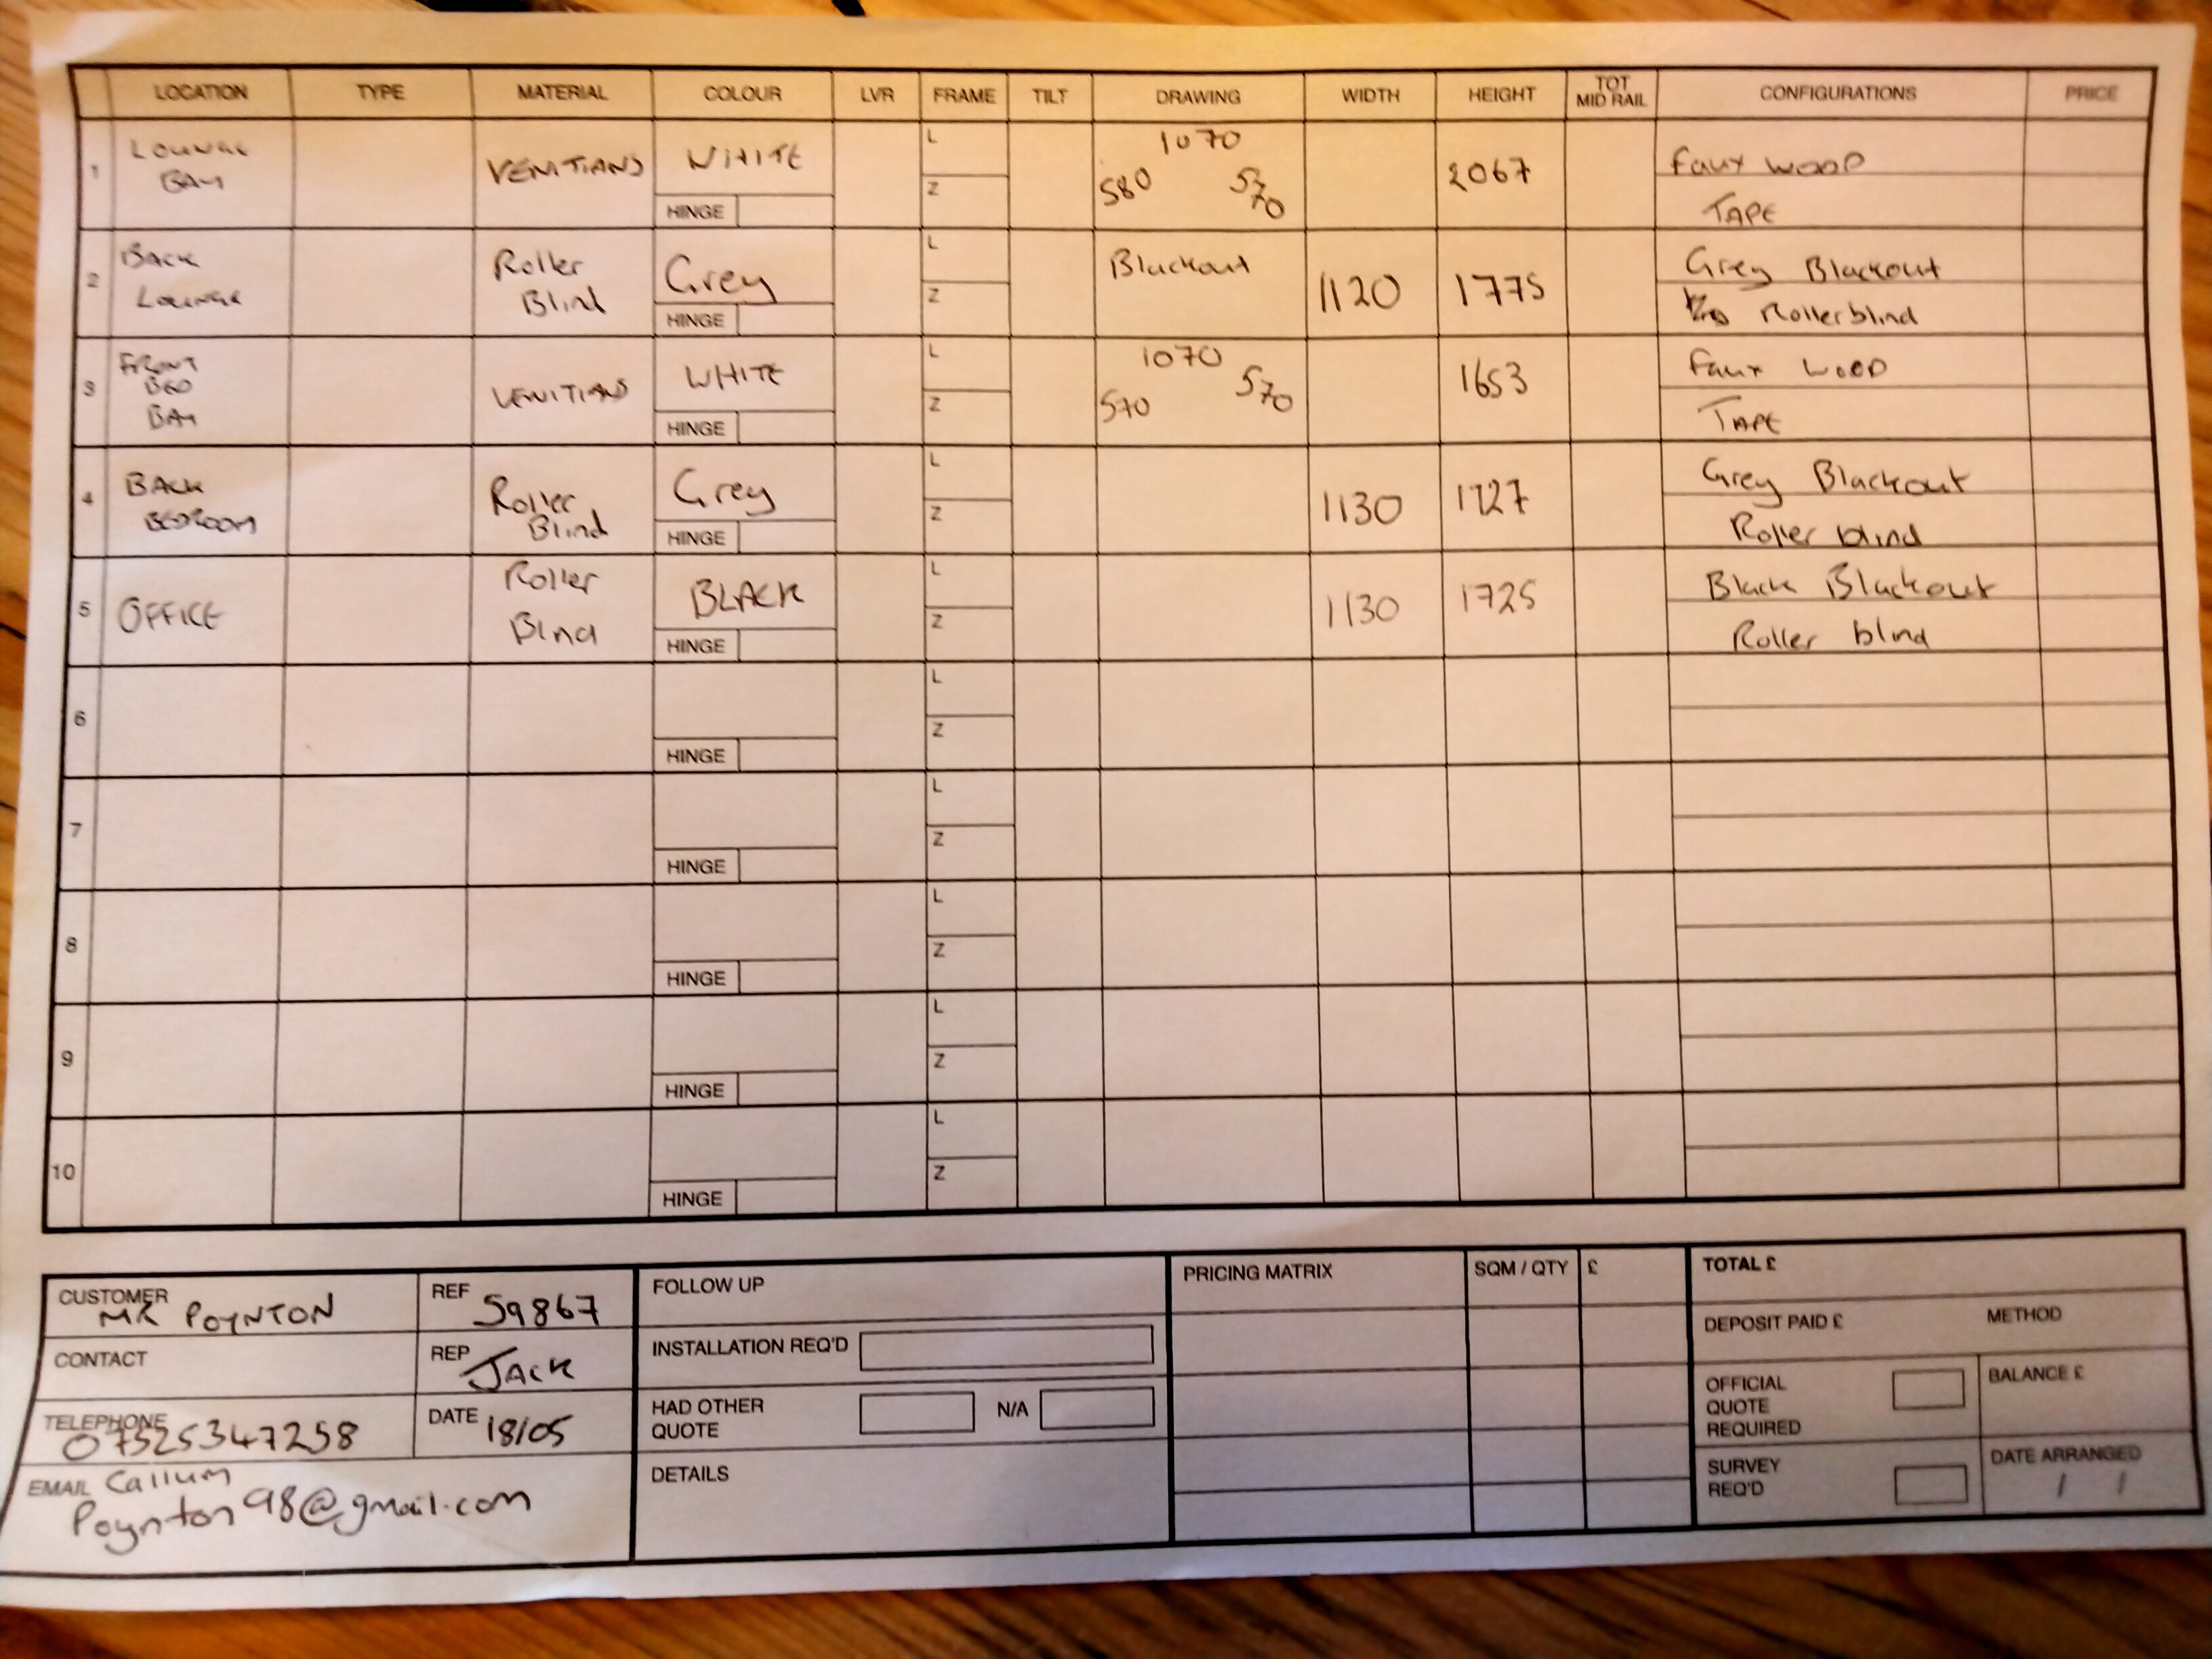 LOCATION TYPE MATERIAL COLOUR LVR FRAME TILT DRAWING WIDTH HEIGHT TOT MID RAIL CONFIGURATIONS PRICE
1 LOUNGE BAY VENITIANS WHITE HINGE L Z 1070 580 570 2067 Faux WOOD TAPE
2 BACK LOUNGE Roller Blind Grey HINGE L Z Blackout 1120 1775 Grey Blackout Rollerblind
3 FRONT BED BAY VENITIANS WHITE HINGE L Z 1070 570 570 1653 Faux WOOD TAPE
4 BACK BEDROOM Roller Blind Grey HINGE L Z 1130 1727 Grey Blackout Roller blind
5 OFFICE Roller Blind BLACK HINGE L Z 1130 1725 Black Blackout Roller blind
6 HINGE L Z
7 HINGE L Z
8 HINGE L Z
9 HINGE L Z
10 HINGE L Z
CUSTOMER MR POYNTON
REF 59867
CONTACT
REP JACK
TELEPHONE 07525347258
DATE 18/05
EMAIL Callum
Poynton98@gmail.com
FOLLOW UP
INSTALLATION REQ'D
HAD OTHER QUOTE N/A
DETAILS
PRICING MATRIX SQM / QTY £
TOTAL £
DEPOSIT PAID £ METHOD
OFFICIAL QUOTE REQUIRED
BALANCE £
SURVEY REQ'D
DATE ARRANGED
/ /